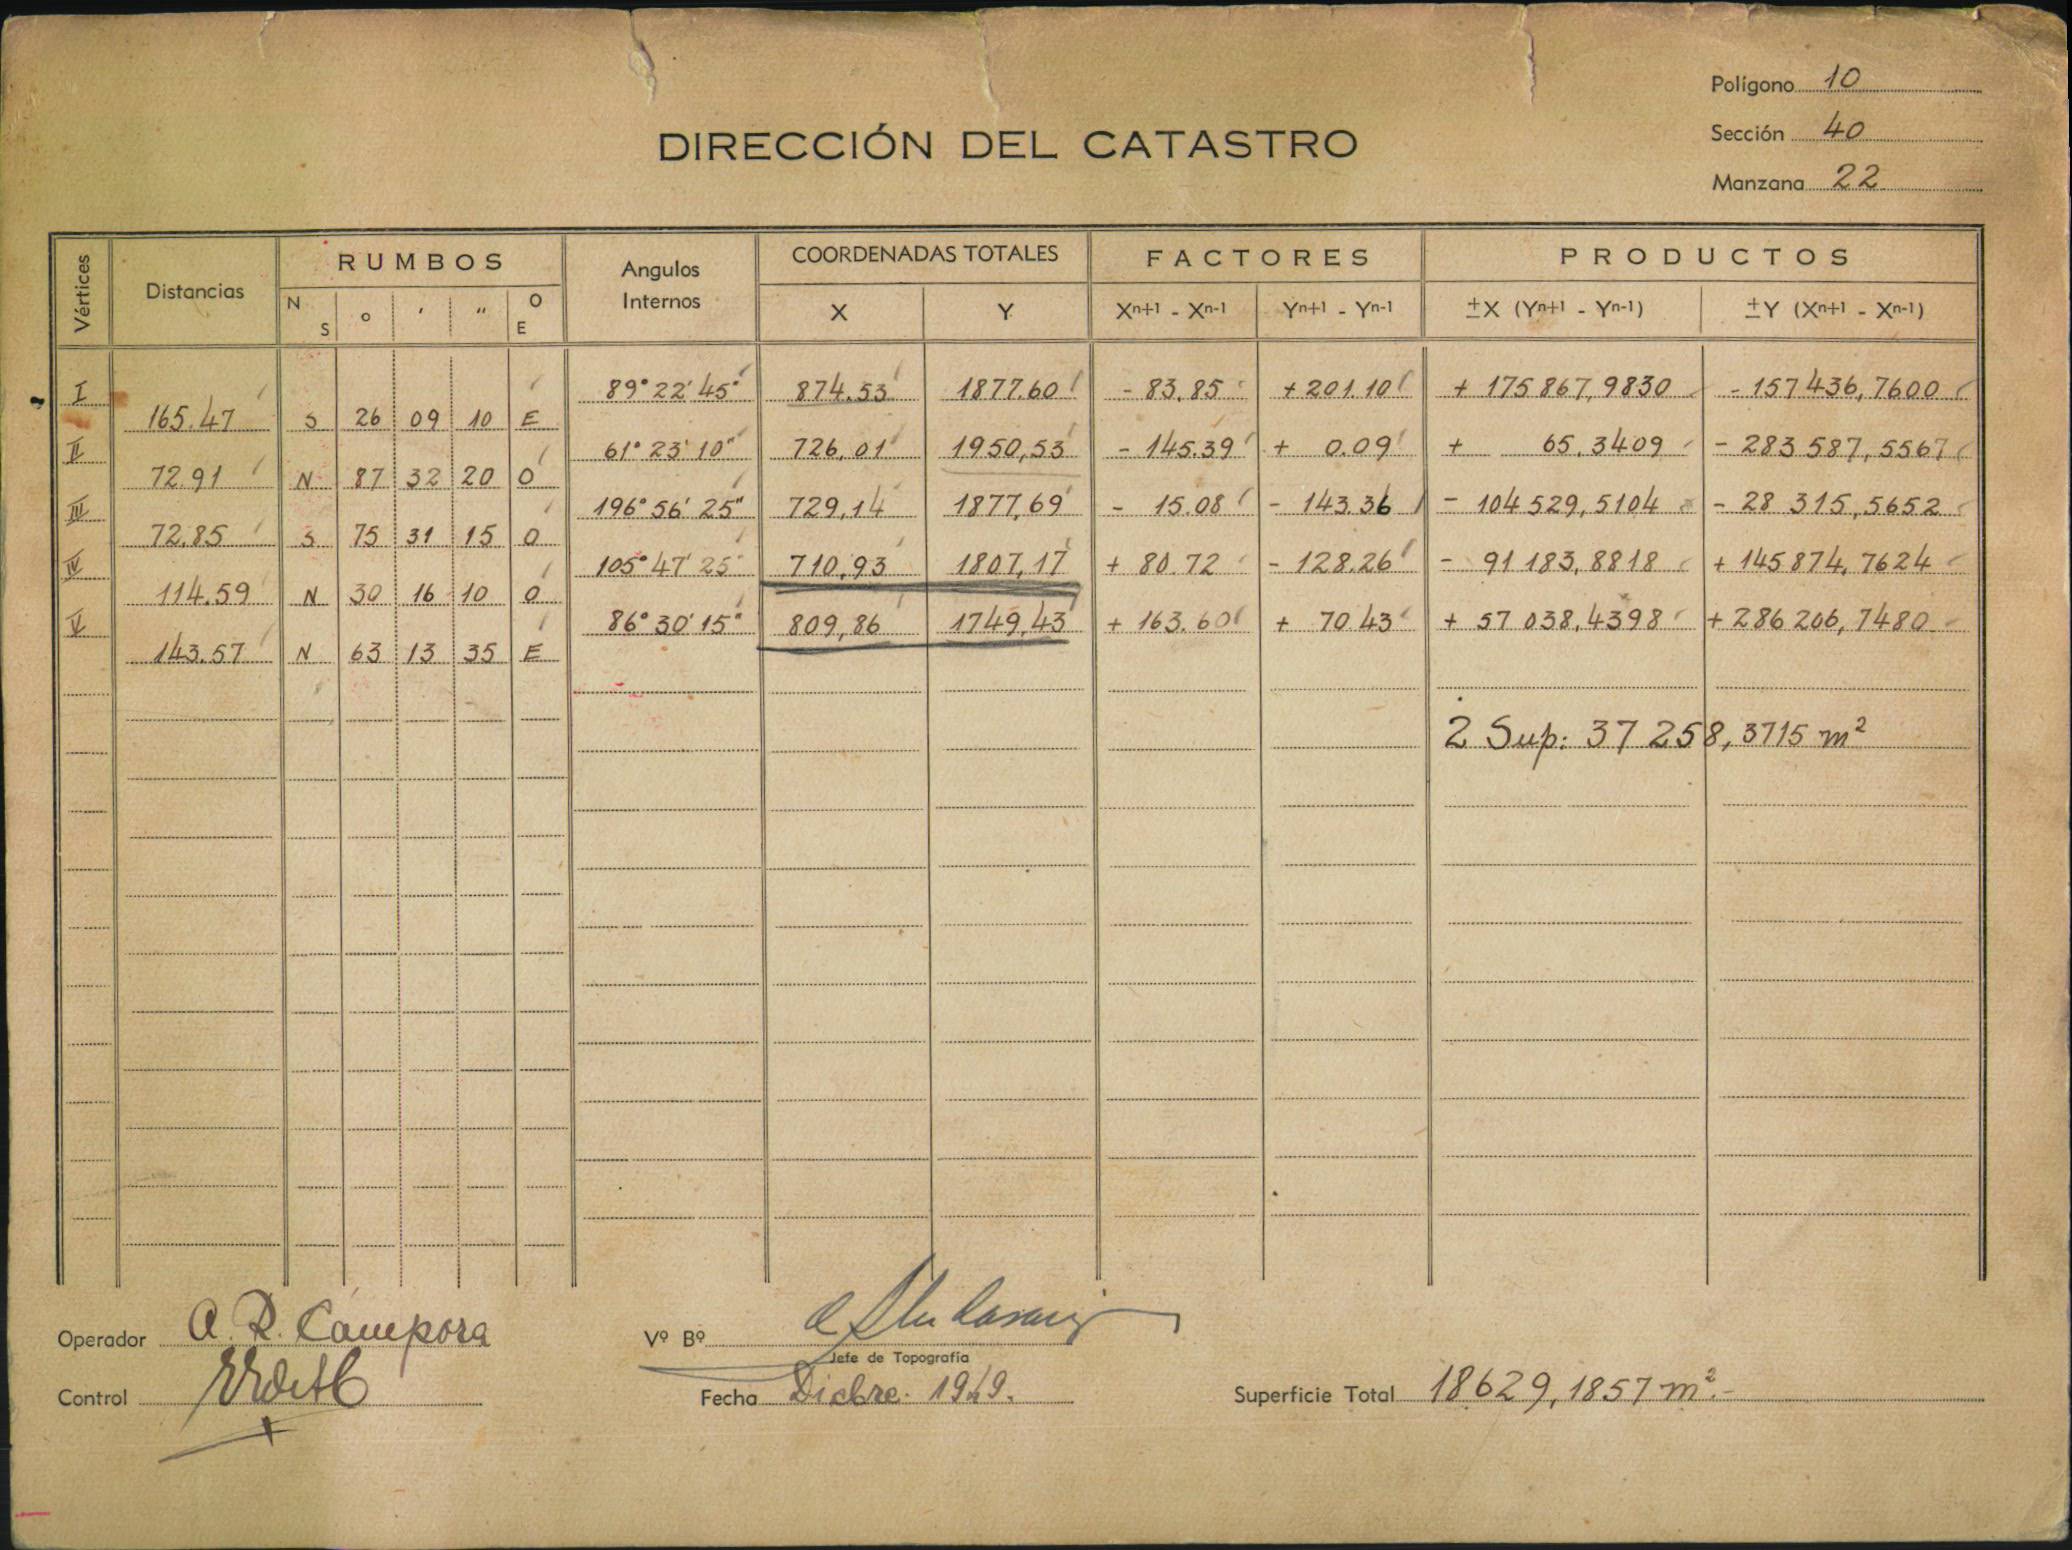 Polígono 10
Sección 40
Manzana 22
DIRECCIÓN DEL CATASTRO
Vértices Distancias RUMBOS Angulos Internos COORDENADAS TOTALES FACTORES PRODUCTOS
N S ° ' " O E X Y Xn+1 - Xn-1 Yn+1 - Yn-1 ±X (Yn+1 - Yn-1) ±Y (Xn+1 - Xn-1)
I 89° 22' 45" 874.53 1877.60 - 83,85 + 201.10 + 175 867,9830 - 157 436,7600
165.47 S 26 09 10 E
II 61° 23' 10" 726,01 1950,53 - 145.39 + 0.09 + 65,3409 - 283 587,5567
72.91 N 87 32 20 O
III 196° 56' 25" 729,14 1877,69 - 15.08 - 143.36 - 104 529,5104 - 28 315,5652
72.85 S 75 31 15 O
IV 105° 47' 25" 710,93 1807,17 + 80.72 - 128.26 - 91 183,8818 + 145 874,7624
114.59 N 30 16 10 O
V 86° 30' 15" 809,86 1749,43 + 163.60 + 70 43 + 57 038,4398 + 286 206,7480
143.57 N 63 13 35 E
2 Sup: 37 258,3715 m²
Operador A. R. Cámpora
Vº Bº
Jefe de Topografía
Control
Fecha Dicbre. 1949.
Superficie Total 18629,1857 m².-